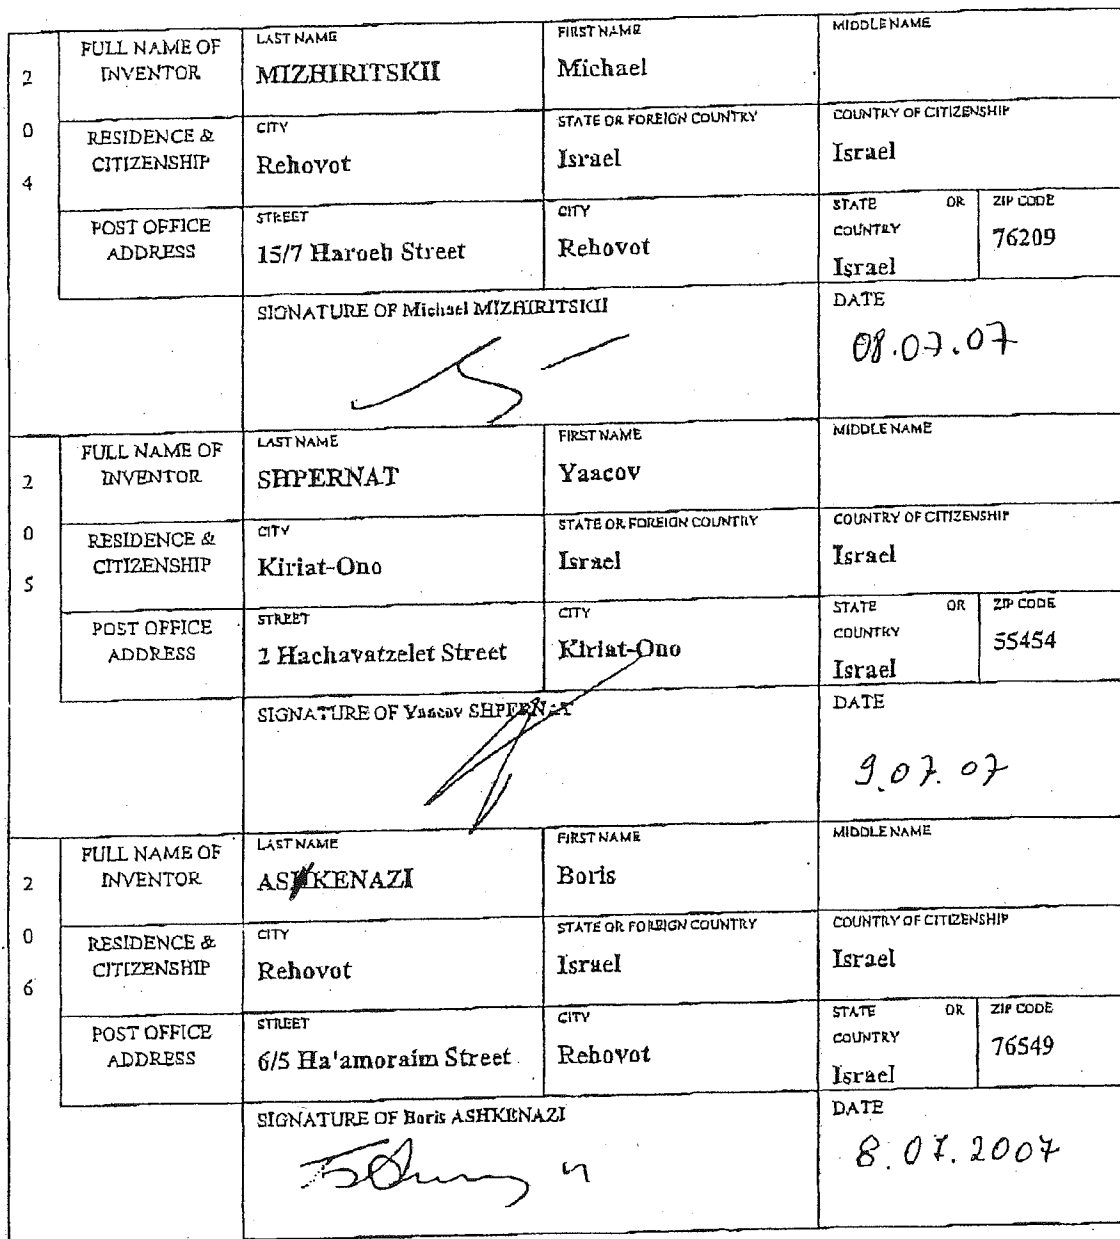 2
0
4
FULL NAME OF INVENTOR
LAST NAME
MIZHIRITSKII
FIRST NAME
Michael
MIDDLE NAME
RESIDENCE & CITIZENSHIP
CITY
Rehovot
STATE OR FOREIGN COUNTRY
Israel
COUNTRY OF CITIZENSHIP
Israel
POST OFFICE ADDRESS
STREET
15/7 Haroeh Street
CITY
Rehovot
STATE OR
COUNTRY
Israel
ZIP CODE
76209
SIGNATURE OF Michael MIZHIRITSKII
DATE
08.07.07
2
0
5
FULL NAME OF INVENTOR
LAST NAME
SHPERNAT
FIRST NAME
Yaacov
MIDDLE NAME
RESIDENCE & CITIZENSHIP
CITY
Kiriat-Ono
STATE OR FOREIGN COUNTRY
Israel
COUNTRY OF CITIZENSHIP
Israel
POST OFFICE ADDRESS
STREET
2 Hachavatzelet Street
CITY
Kiriat-Ono
STATE OR
COUNTRY
Israel
ZIP CODE
55454
SIGNATURE OF Yaacov SHPERNAT
DATE
9.07.07
2
0
6
FULL NAME OF INVENTOR
LAST NAME
ASHKENAZI
FIRST NAME
Boris
MIDDLE NAME
RESIDENCE & CITIZENSHIP
CITY
Rehovot
STATE OR FOREIGN COUNTRY
Israel
COUNTRY OF CITIZENSHIP
Israel
POST OFFICE ADDRESS
STREET
6/5 Ha'amoraim Street
CITY
Rehovot
STATE OR
COUNTRY
Israel
ZIP CODE
76549
SIGNATURE OF Boris ASHKENAZI
DATE
8.07.2007